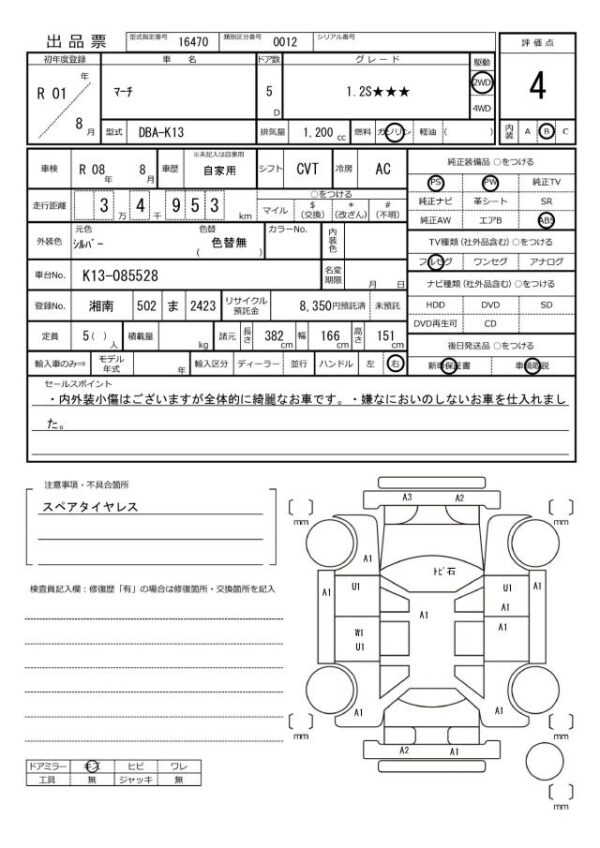 出品票 型式指定番号 16470 類別区分番号 0012 シリアル番号
評価点
初年度登録 車名 ドア数 グレード 駆動
R 01 年 8 月 マーチ 5 D 1.2S★★★ 2WD 4WD 4
型式 DBA-K13 排気量 1,200 cc 燃料 ガソリン 軽油 ( ) 内装 A B C
車検 R 08 年 8 月 車歴 ※未記入は自家用 自家用 シフト CVT 冷房 AC
純正装備品 ○をつける
PS PW 純正TV
走行距離 3 万 4 千 9 5 3 km ○をつける マイル $ (交換) * (改ざん) # (不明)
純正ナビ 革シート SR
純正AW エアB ABS
外装色 元色 シルバー 色替 色替無 ( ) カラーNo. 内装色
TV種類 (社外品含む) ○をつける
フルセグ ワンセグ アナログ
車台No. K13-085528 名変期限 月 日
ナビ種類 (社外品含む) ○をつける
HDD DVD SD
登録No. 湘南 502 ま 2423 リサイクル預託金 8,350円預託済 未預託
DVD再生可 CD
定員 5( ) 人 積載量 kg 諸元 長さ 382 cm 幅 166 cm 高さ 151 cm
後日発送品 ○をつける
輸入車のみ⇒ モデル年式 年 輸入区分 ディーラー 並行 ハンドル 左 右
新車保証書 車輌取説
セールスポイント
・内外装小傷はございますが全体的に綺麗なお車です。・嫌なにおいのしないお車を仕入れまし
た。
注意事項・不具合箇所
スペアタイヤレス
検査員記入欄：修復歴「有」の場合は修復箇所・交換箇所を記入
ドアミラー キズ ヒビ ワレ
工具 無 ジャッキ 無
A3 A2
mm mm
A1 A1
トビ石
A1 U1 U1 A1
A1
W1 A1
U1
A1 A1
mm mm
A2 A1
mm